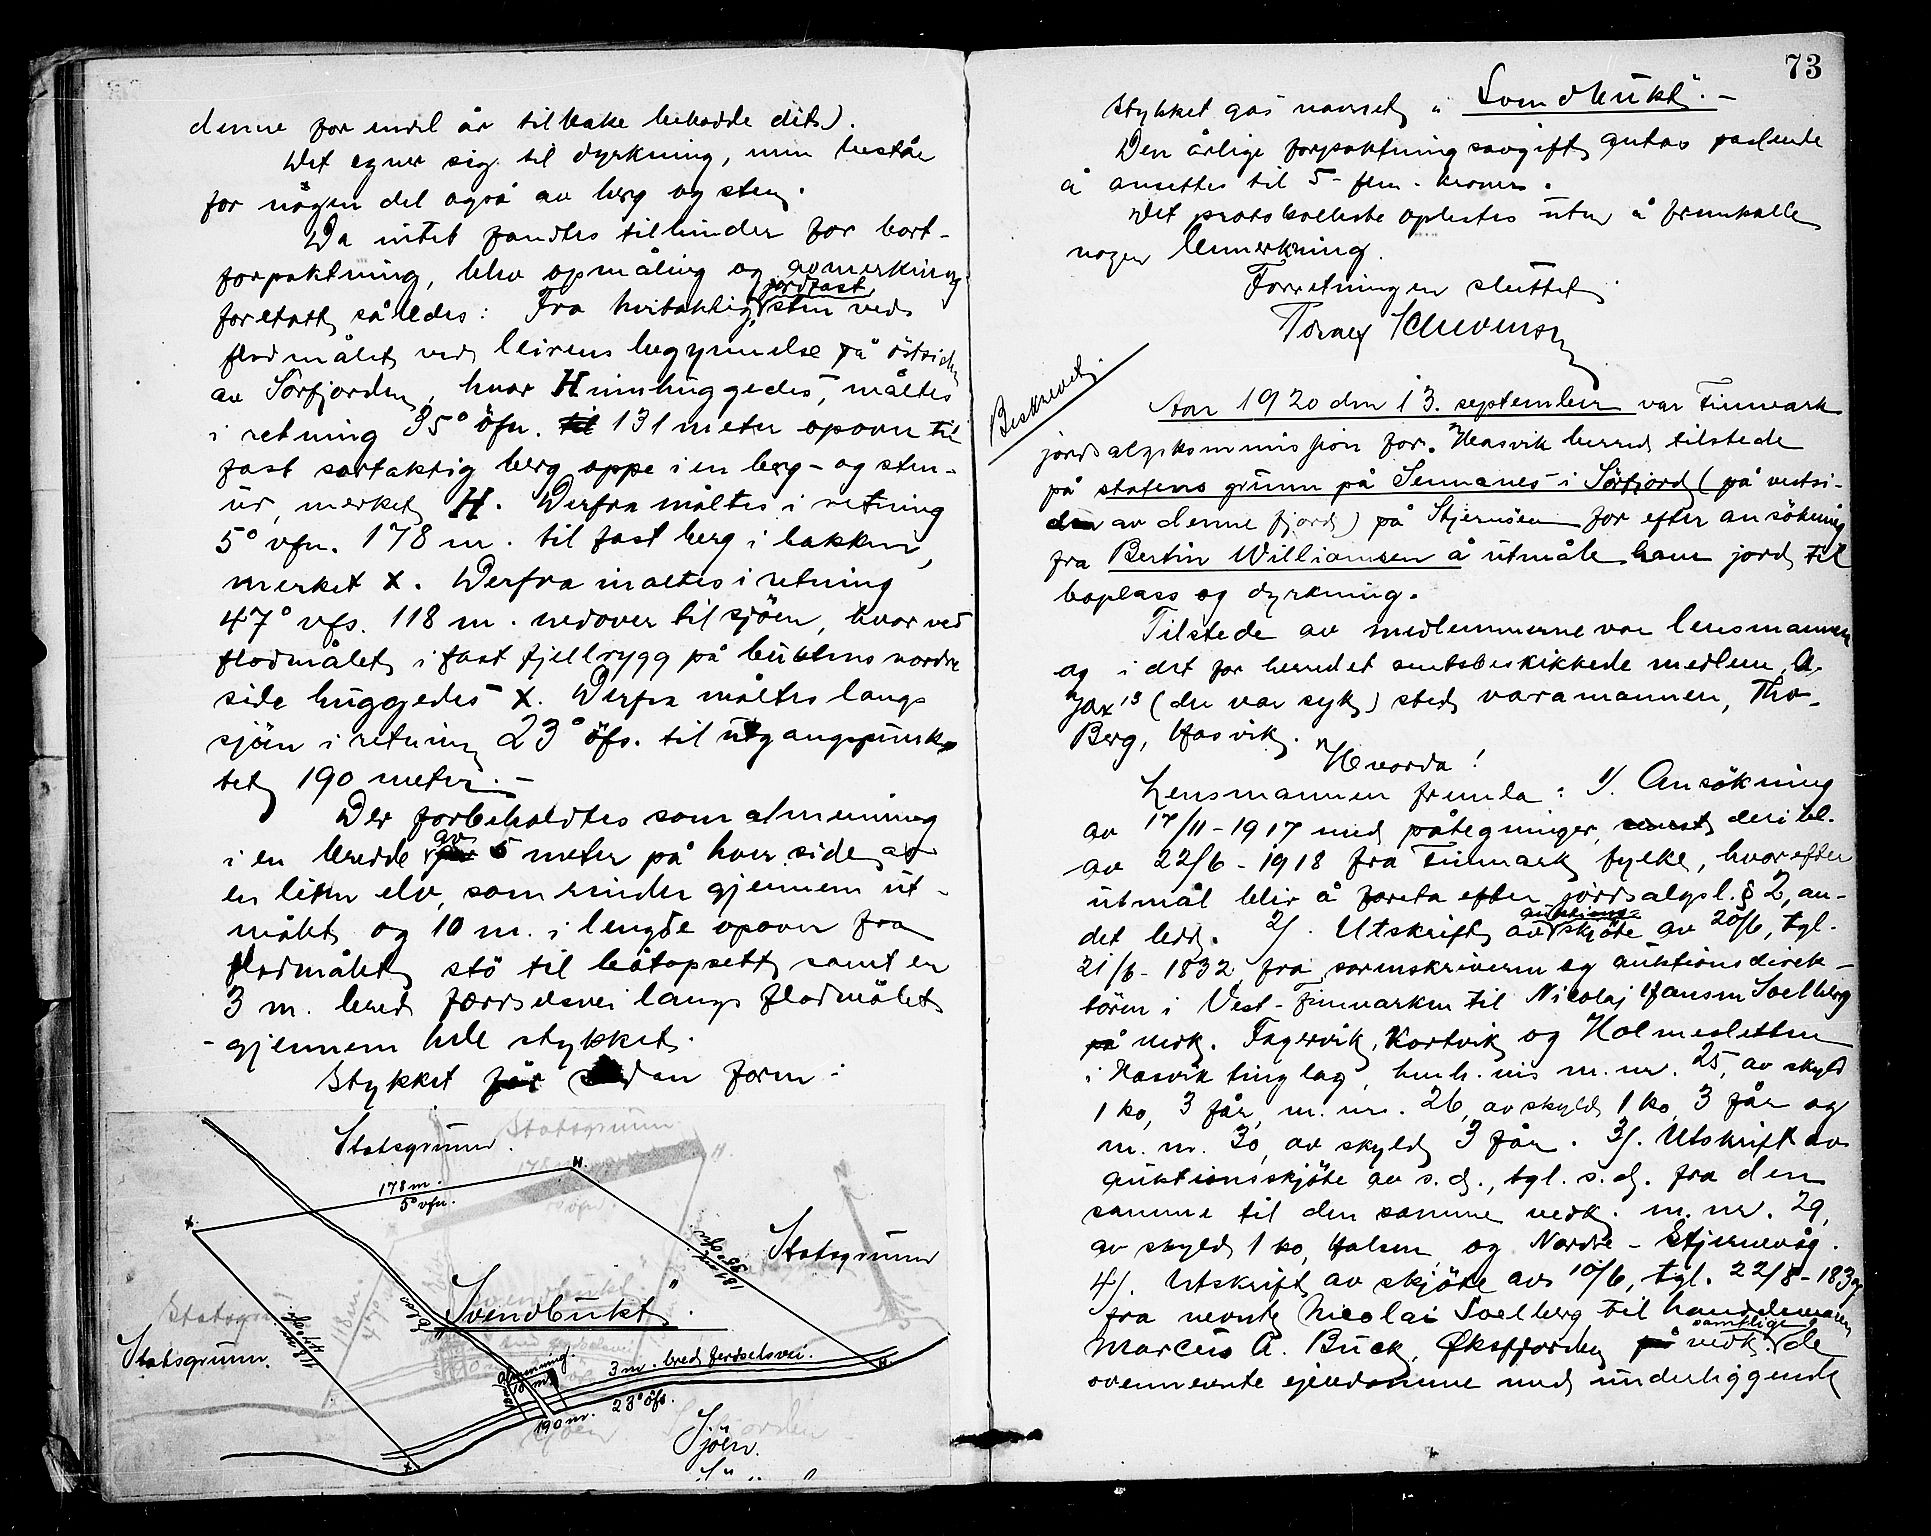 denne for endel år tilbake bebodde dits).
Det egner sig til dyrkning, men består
for nogen del også av berg og sten.
Da intet fandtes tilhinder for bort-
forpaktning, blev opmåling og avmerking
foretatt således: Fra hvitaktig jordfast sten ved
flodmålet ved leirens begynnelse på östsiden
av Sörfjorden, hvor H innhuggedes, måltes
i retning 35° öfn. til 131 meter opover til
fast sortaktig berg oppe i en berg- og sten-
ur, merket H. Derfra måltes i retning
5° vfn. 178 m. til fast berg i bakken,
merket X. Derfra måltes i retning
47° vfs. 118 m. nedover til sjöen, hvor ved
flodmålet i fast fjellrygg på buktens nordre
side huggedes X. Derfra måltes langs
sjöen i retning 23° öfs. til utgangspunk-
tet 190 meter.-
Der forbeholdtes som almenning
i en bredde av 5 meter på hver side av
en liten elv, som rinder gjennem ut-
målet og 10 m. i lengde opover fra
flodmålet stö til båtopsett samt en
3 m. bred færdselsvei langs flodmålet
gjennem hele stykket.
Stykket får sådan form:
Statsgrunn.
178 m.
5° vfn.
H
X
131 m
35° öfn.
Statsgrunn
118 m
47° vfs.
Statsgrunn.
"Svendbukt".
Almenning.
10 m.
3 m. bred ferdselsvei.
190 m. 23° öfs.
H
X
Sjöen.
73
Stykket gås navnet "Svendbukt".-
Den årlige forpaktningsavgift antas passende
å ansettes til 5- fem - kroner.
Det protokollerte oplestes uten å fremkalle
nogen bemerkning.
Forretningen sluttet.
Beskrevet
Aar 1920 den 13. september var Finmark
jordsalgskommissjon for Hasvik herred tilstede
på statens grunn på Sennanes i Sörfjord (på vestsi-
den av denne fjord) på Stjernöen for efter ansökning
fra Bertin Williamsen å utmåle ham jord til
boplass og dyrkning.
Tilstede av medlemmerne var lensmannen
og i det for herredet amtsbeskikkede medlem, A.
(der var syk) sted varamannen, Tho-
Berg, Hasvik.
Hvorda!
Lensmannen fremla: 1/. Ansökning
av 17/11-1917 med påtegninger, deribl.
av 22/6-1918 fra Finmark fylke, hvorefter
utmål blir å foreta efter jordsalgsl. § 2, an-
det ledd. 2/. Utskrift av auktions-skjöte av 20/6, tgl.
21/6-1832 fra sorenskriveren og auktionsdirek-
tören i Vest-Finmarken til Nicolaj Hansen Soelberg
på vedk. Fagervik, Kortvik og Holmesletten
i Hasvik tinglag, henh. vis m. nr. 25, av skyld
1 ko, 3 får, m. nr. 26, av skyld 1 ko 3 får og
m. nr. 30, av skyld 3 får. 3/. Utskrift av
auktionsskjöte av s. d., tgl. s. d. fra den
samme til den samme vedk. m. nr. 29,
av skyld 1 ko, Halsen, og Nordre-Stjernevåg.
4/. Utskrift av skjöte av 10/6, tgl. 22/8-1839
fra nevnte Nicolai Soelberg til handelsmann
Marcus A. Buck, Øksfjorden på vedk. samtlige de
ovennevnte eiendomme med underliggende